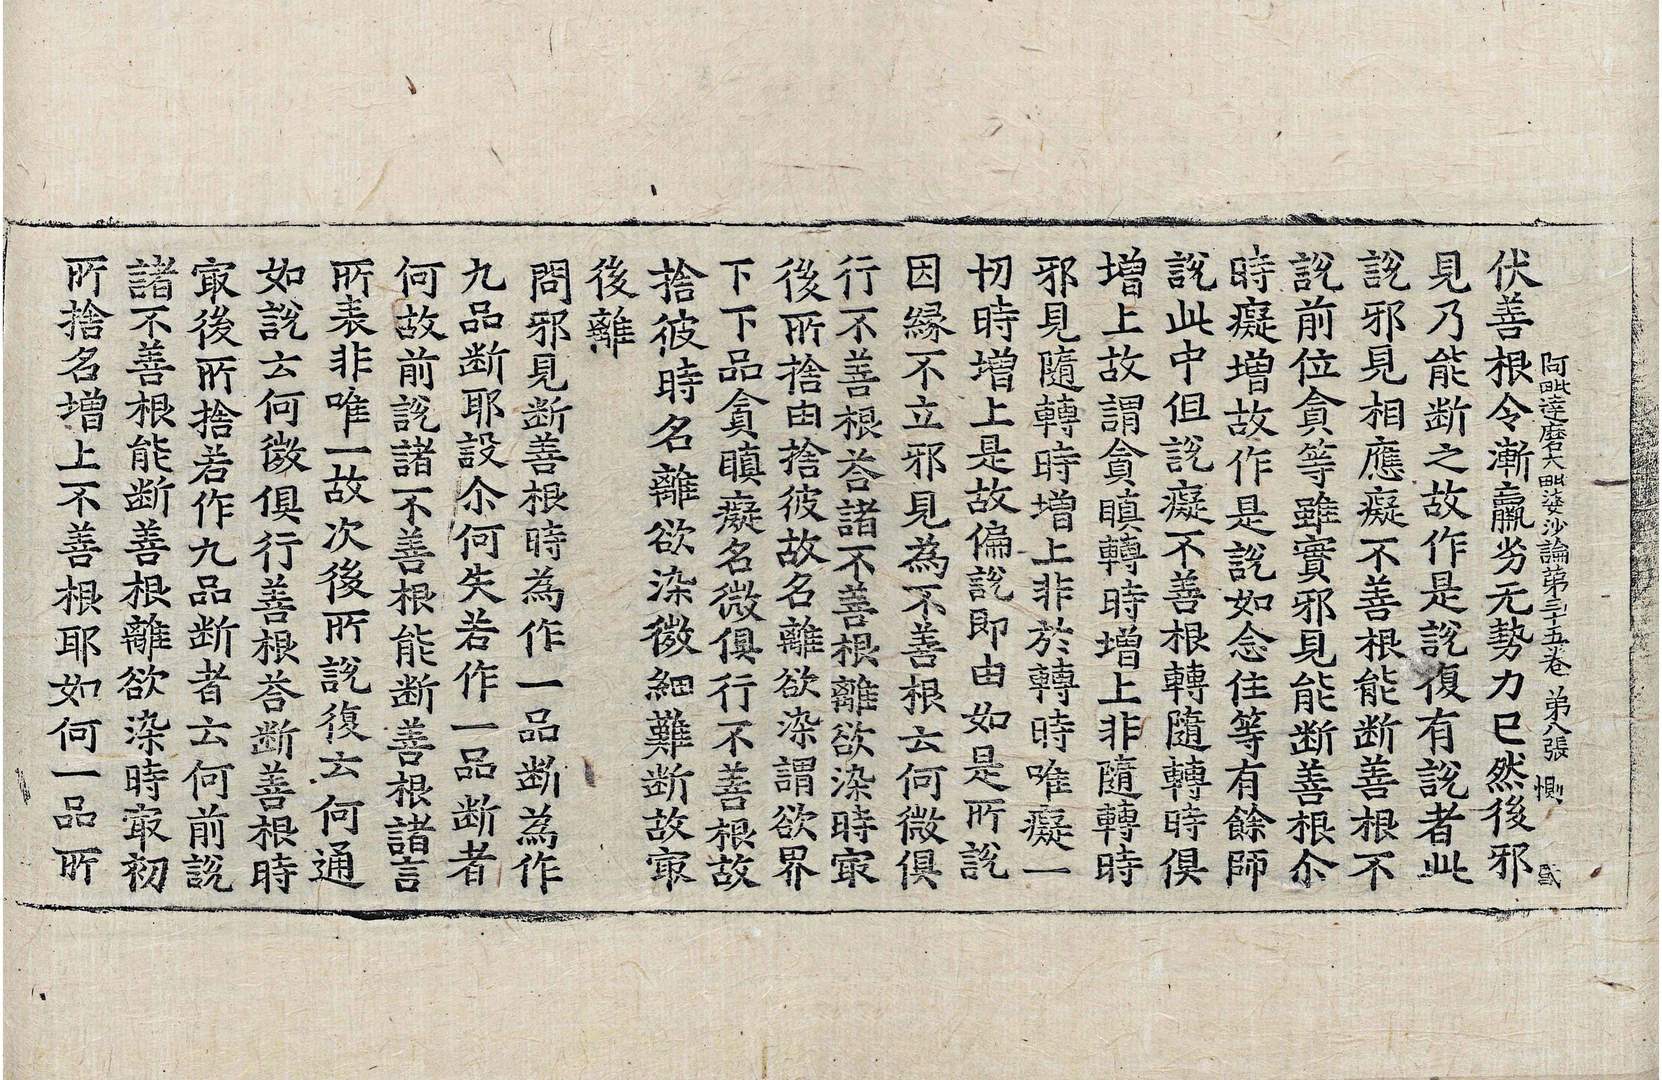 阿毗達磨大毗婆沙論第三十五卷 第八張 惻
伏善根令漸羸劣无勢力已然後邪
見乃能断之故作是說復有說者此
說邪見相應癡不善根能断善根不
說前位貪等雖實邪見能断善根尒
時癡增故作是說如念住等有餘師
說此中但說癡不善根轉隨轉時俱
增上故謂貪瞋轉時增上非隨轉時
邪見隨轉時增上非於轉時唯癡一
切時增上是故偏說即由如是所說
因緣不立邪見為不善根云何微俱
行不善根荅諸不善根離欲染時冣
後所捨由捨彼故名離欲染謂欲界
下下品貪瞋癡名微俱行不善根故
捨彼時名離欲染微細難断故冣
後離
問邪見断善根時為作一品断為作
九品断耶設尒何失若作一品断者
何故前說諸不善根能断善根諸言
所表非唯一故次後所說復云何通
如說云何微俱行善根荅断善根時
冣後所捨若作九品断者云何前說
諸不善根能断善根離欲染時冣初
所捨名增上不善根耶如何一品所